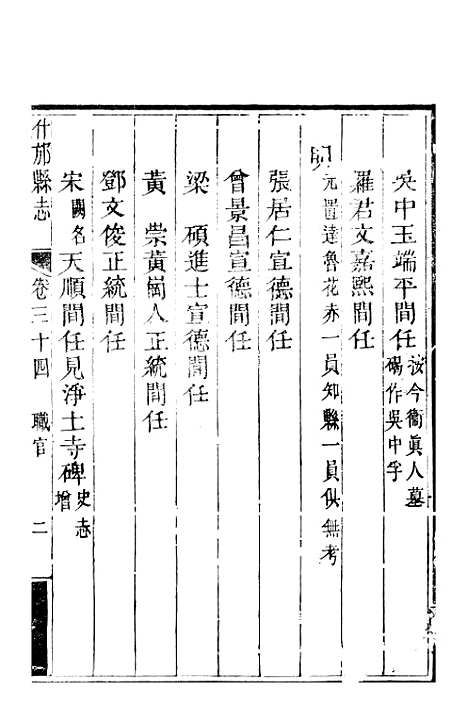 吳中玉端平間任按今衛眞人墓碣作吳中孚
羅君文嘉熙間任
元置達魯花赤一員知縣一員俱無考
明
張居仁宣德間任
曾景昌宣德間任
梁 碩進士宣德間任
黃 崇黃崗人正統間任
鄧文俊正統間任
宋闕名天順間任見淨土寺碑史志增
什邡縣志 卷三十四 職官 二